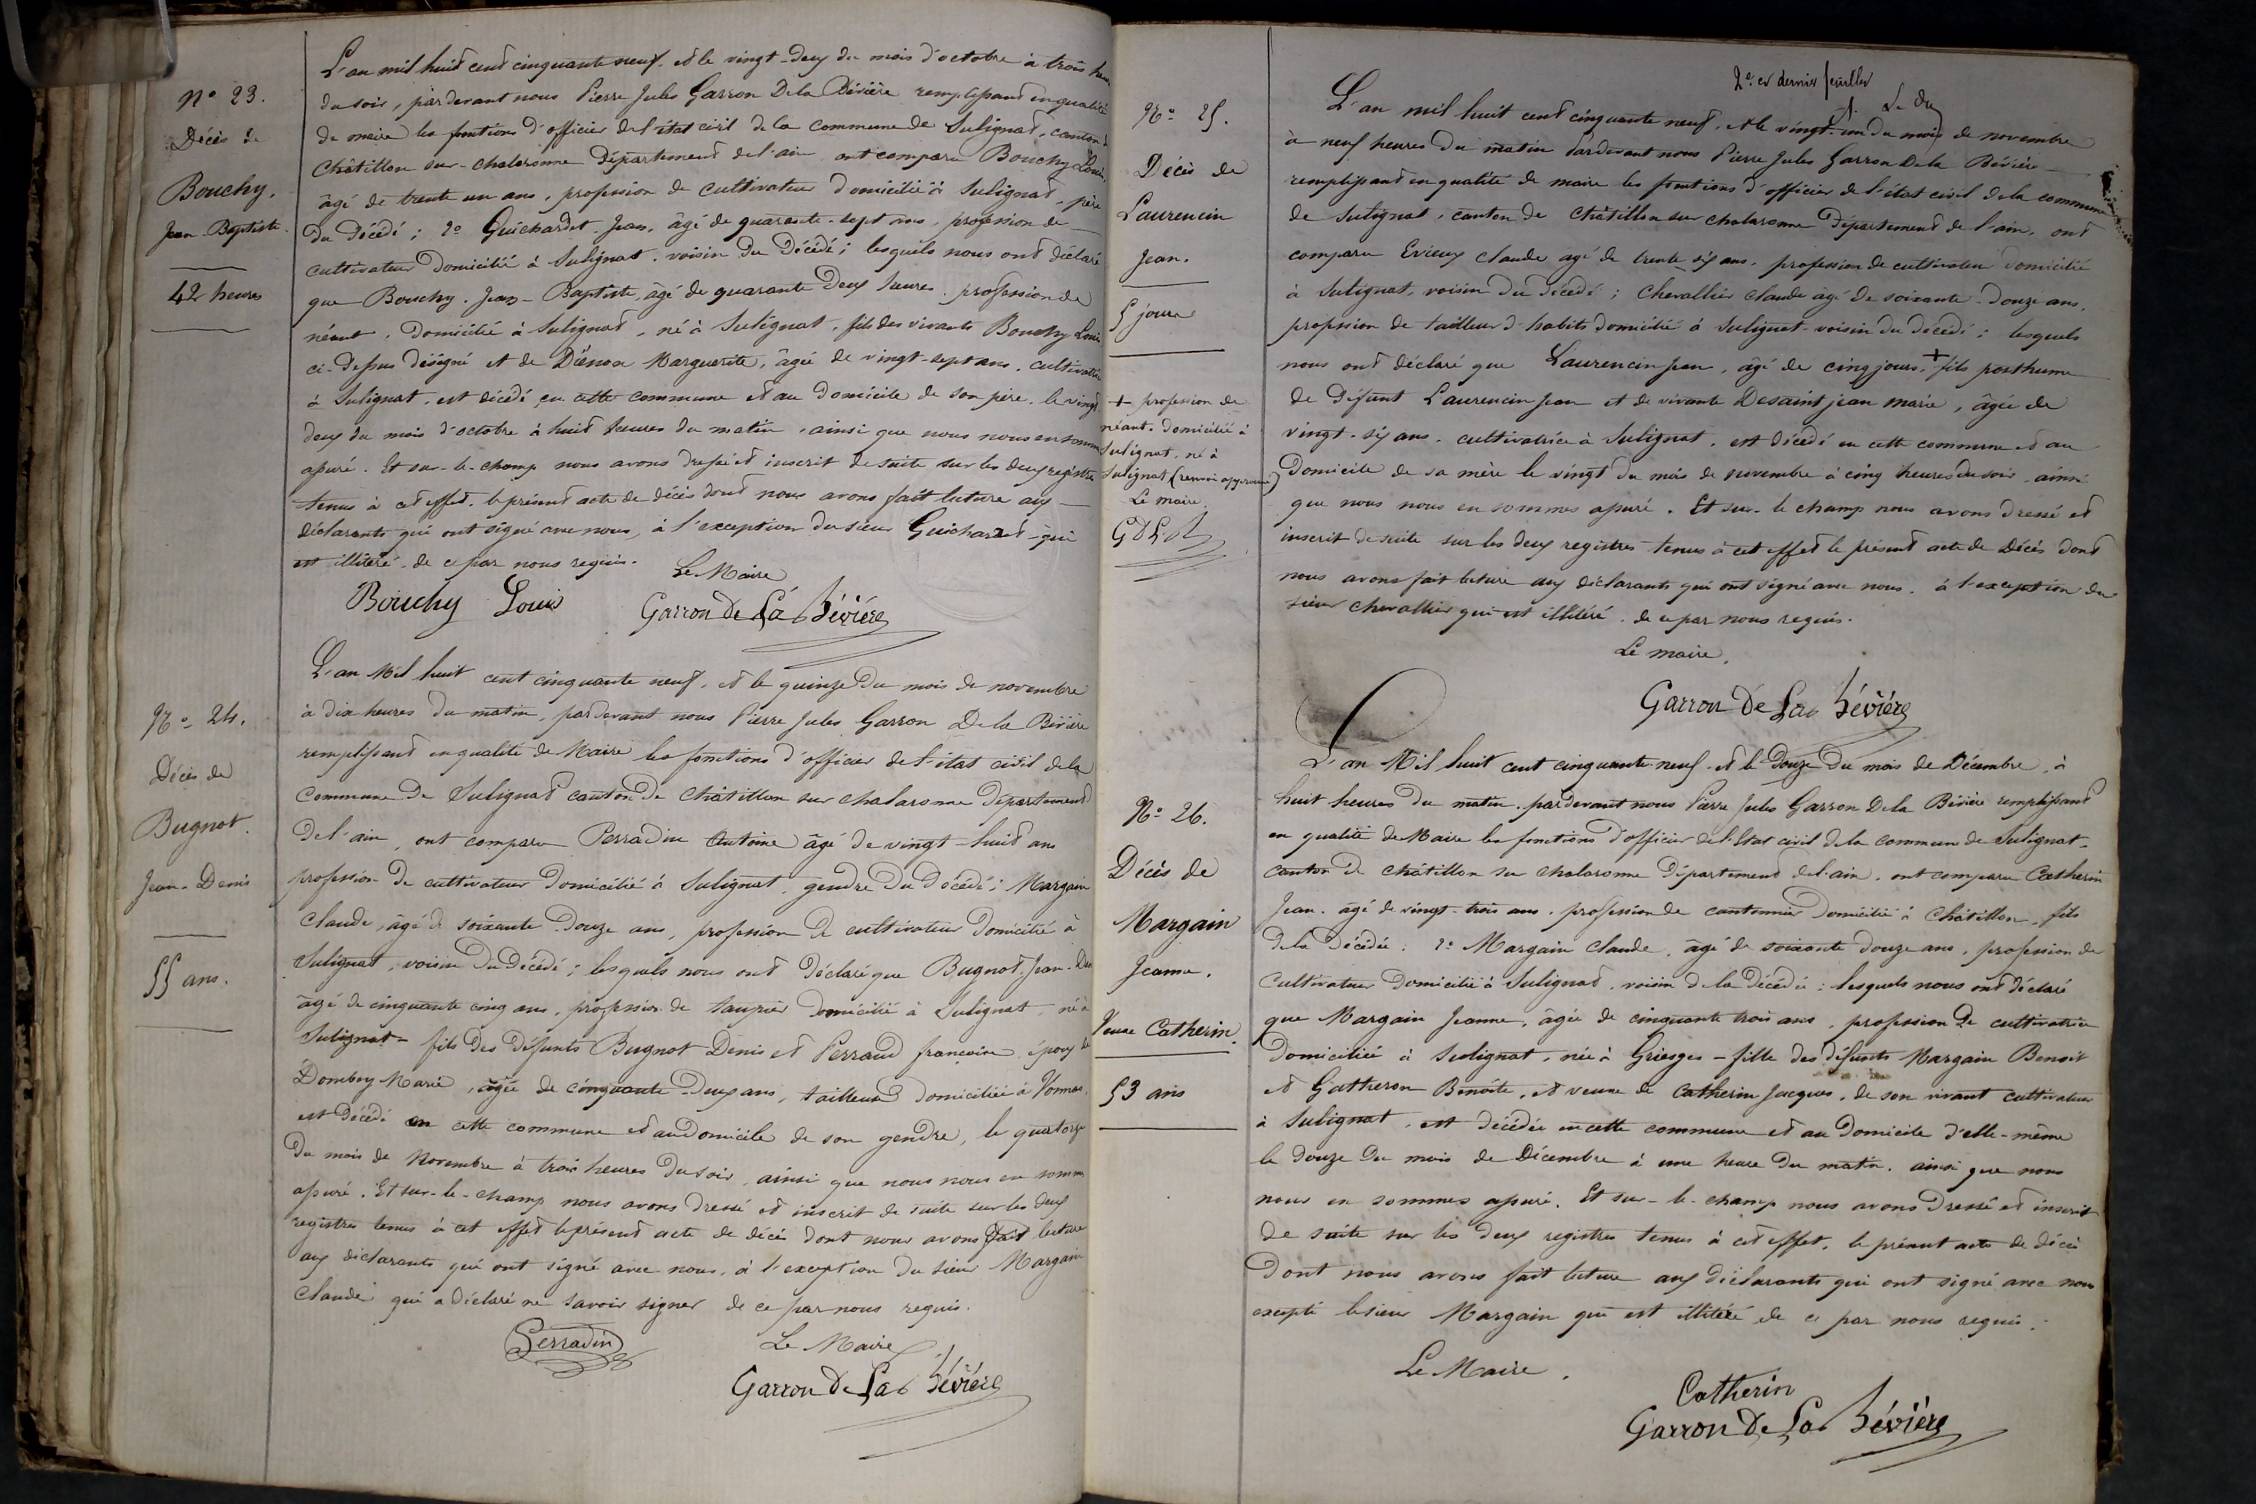 N° 23.
Décès de
Bouchy.
Jean-Baptiste.
42 heures
L'an mil huit cent cinquante neuf. et le vingt-deux du mois d'octobre à trois heures
du soir, pardevant nous Pierre Jules Garron De la Bévière remplissant en qualité
de maire les fontions d'officier de l'état civil de la commune de Sulignat, canton de
Châtillon sur-chalaronne Département de l'ain ont comparu Bouchy Louis,
âgé de trente un ans, profession de cultivateur domicilié à Sulignat, père
du Décédé; 2° Guichardet Jean, âgé de quarante-sept ans, profession de
cultivateur domicilié à Sulignat. voisin du Décédé; lesquels nous ont déclaré
que Bouchy. Jean-Baptiste, âgé de quarante deux heures. profession de
néant, domicilié à Sulignat, né à Sulignat, fils des vivants Bouchy Louis
ci-dessus désigné et de Marguerite, âgée de vingt-sept ans, cultivatrice
à Sulignat, est décédé en cette commune et au domicile de son père. le vingt
deux du mois d'octobre à huit heures du matin, ainsi que nous nous en sommes
assuré. Et sur-le-champ nous avons dressé et inscrit de suite sur les deux registres
tenus à cet effet, le présent acte de décès dont nous avons fait lecture aux
déclarants qui ont signé avec nous, à l'exception du sieur Guichardet qui
est illitéré de ce par nous requis.
Le Maire
Bouchy Louis Garron De La Bévière
N° 24.
Décès de
Bugnot.
Jean-Denis
55 ans.
L'an Mil huit cent cinquante neuf, et le quinze du mois de novembre
à dix heures du matin, pardevant nous Pierre Jules Garron De la Bévière
remplissant en qualité de Maire les fonctions d'officier de l'état civil de la
Commune De Sulignat canton De Châtillon sur chalaronne Département
De l'ain, ont comparu Perradin Antoine âgé de vingt-huit ans
profession de cultivateur domicilié à Sulignat, gendre du Décédé; Margain
Claude, âgé de soixante Douze ans, profession de cultivateur domicilié à
Sulignat, voisin du Décédé; lesquels nous ont déclaré que Bugnot. Jean-Denis
âgé de cinquante cinq ans, profession de taupier domicilié à Sulignat, né à
Sulignat fils des défunts Bugnot Denis et Perraud françoise époux de
Dombey Marie, âgée de cinquante-deux ans, tailleuse domiciliée à Vonnas,
est décédé en cette commune et au domicile de son gendre, le quatorze
du mois de Novembre à trois heures du soir, ainsi que nous nous en sommes
assuré. Et sur-le-champ nous avons dressé et inscrit de suite sur les deux
registres tenus à cet effet le présent acte de décès dont nous avons fait lecture
aux déclarants qui ont signé avec nous, à l'exception du sieur Margain
Claude qui a déclaré ne savoir signer de ce par nous requis.
Perradin Le Maire
Garron De La Bévière
2e et dernier feuillet
N° 25.
Décès de
Laurencin
Jean.
5 jours
+ profession de
néant. domicilié à
Sulignat, né à
Sulignat (renvoi approuvé)
Le maire.
L'an mil huit cent cinquante neuf, et le vingt-un du mois de novembre
à neuf heures du matin Pardevant nous Pierre Jules Garron De la Bévière
remplissant en qualité de maire les fontions d'officier de l'état civil de la commune
de Sulignat, canton de Châtillon sur chalaronne Département de l'ain, ont
comparu Evieux claude agé de trente six ans, profession de cultivateur domicilié
à Sulignat, voisin du décédé; Chevallier Claude âgé de soixante-douze ans,
profession de tailleur d'habits domicilié à Sulignat voisin du décédé; lesquels
nous ont déclaré que Laurencin Jean, âgé de cinq jours, + fils posthume
de défunt Laurencin Jean et de vivante Desaintjean Marie, âgée de
vingt-six ans. cultivatrice à Sulignat, est décédé en cette commune et au
domicile de sa mère le vingt du mois de novembre à cinq heures du soir ainsi
que nous nous en sommes assuré. Et sur-le champ nous avons dressé et
inscrit de suite sur les deux registres tenus à cet effet le présent acte de décès dont
nous avons fait lecture aux déclarants qui ont signé avec nous. à l'exception du
sieur Chevallier qui est illitéré. de ce par nous requis.
Le maire,
Garron De La Bévière
N° 26.
Décès de
Margain
Jeanne.
Veuve Catherin.
53 ans
L'an Mil huit cent cinquante neuf. et le Douze du mois de Décembre, à
huit heures du matin, pardevant nous Pierre Jules Garron De la Bévière remplissant
en qualité de Maire les fonctions d'officier de l'Etat civil de la commune de Sulignat
canton de Châtillon sur chalaronne Département de l'ain. ont comparu Catherin
Jean. âgé de vingt-trois ans. profession de cantonnier Domicilié à Châtillon, fils
de la Décédée; 2° Margain Claude, âgé de soixante douze ans, profession de
cultivateur domicilié à Sulignat, voisin de la décédée: lesquels nous ont déclaré
que Margain Jeanne, âgée de cinquante trois ans, profession de cultivatrice
domiciliée à Sulignat, née à Grièges - fille des défunts Margain Benoit
et Gatheron Benoîte, et veuve de Catherin Jacques, de son vivant cultivateur
à Sulignat, est décédée en cette commune et au domicile d'elle-même
le douze du mois de Décembre à une heure du matin. ainsi que nous
nous en sommes assuré. Et sur-le-champ nous avons dressé et inscrit
de suite sur les deux registres tenus à cet effet, le présent acte de décès
dont nous avons fait lecture aux déclarants qui ont signé avec nous
excepté le sieur Margain qui est illitéré de ce par nous requis.
Le Maire.
Catherin
Garron De La Bévière